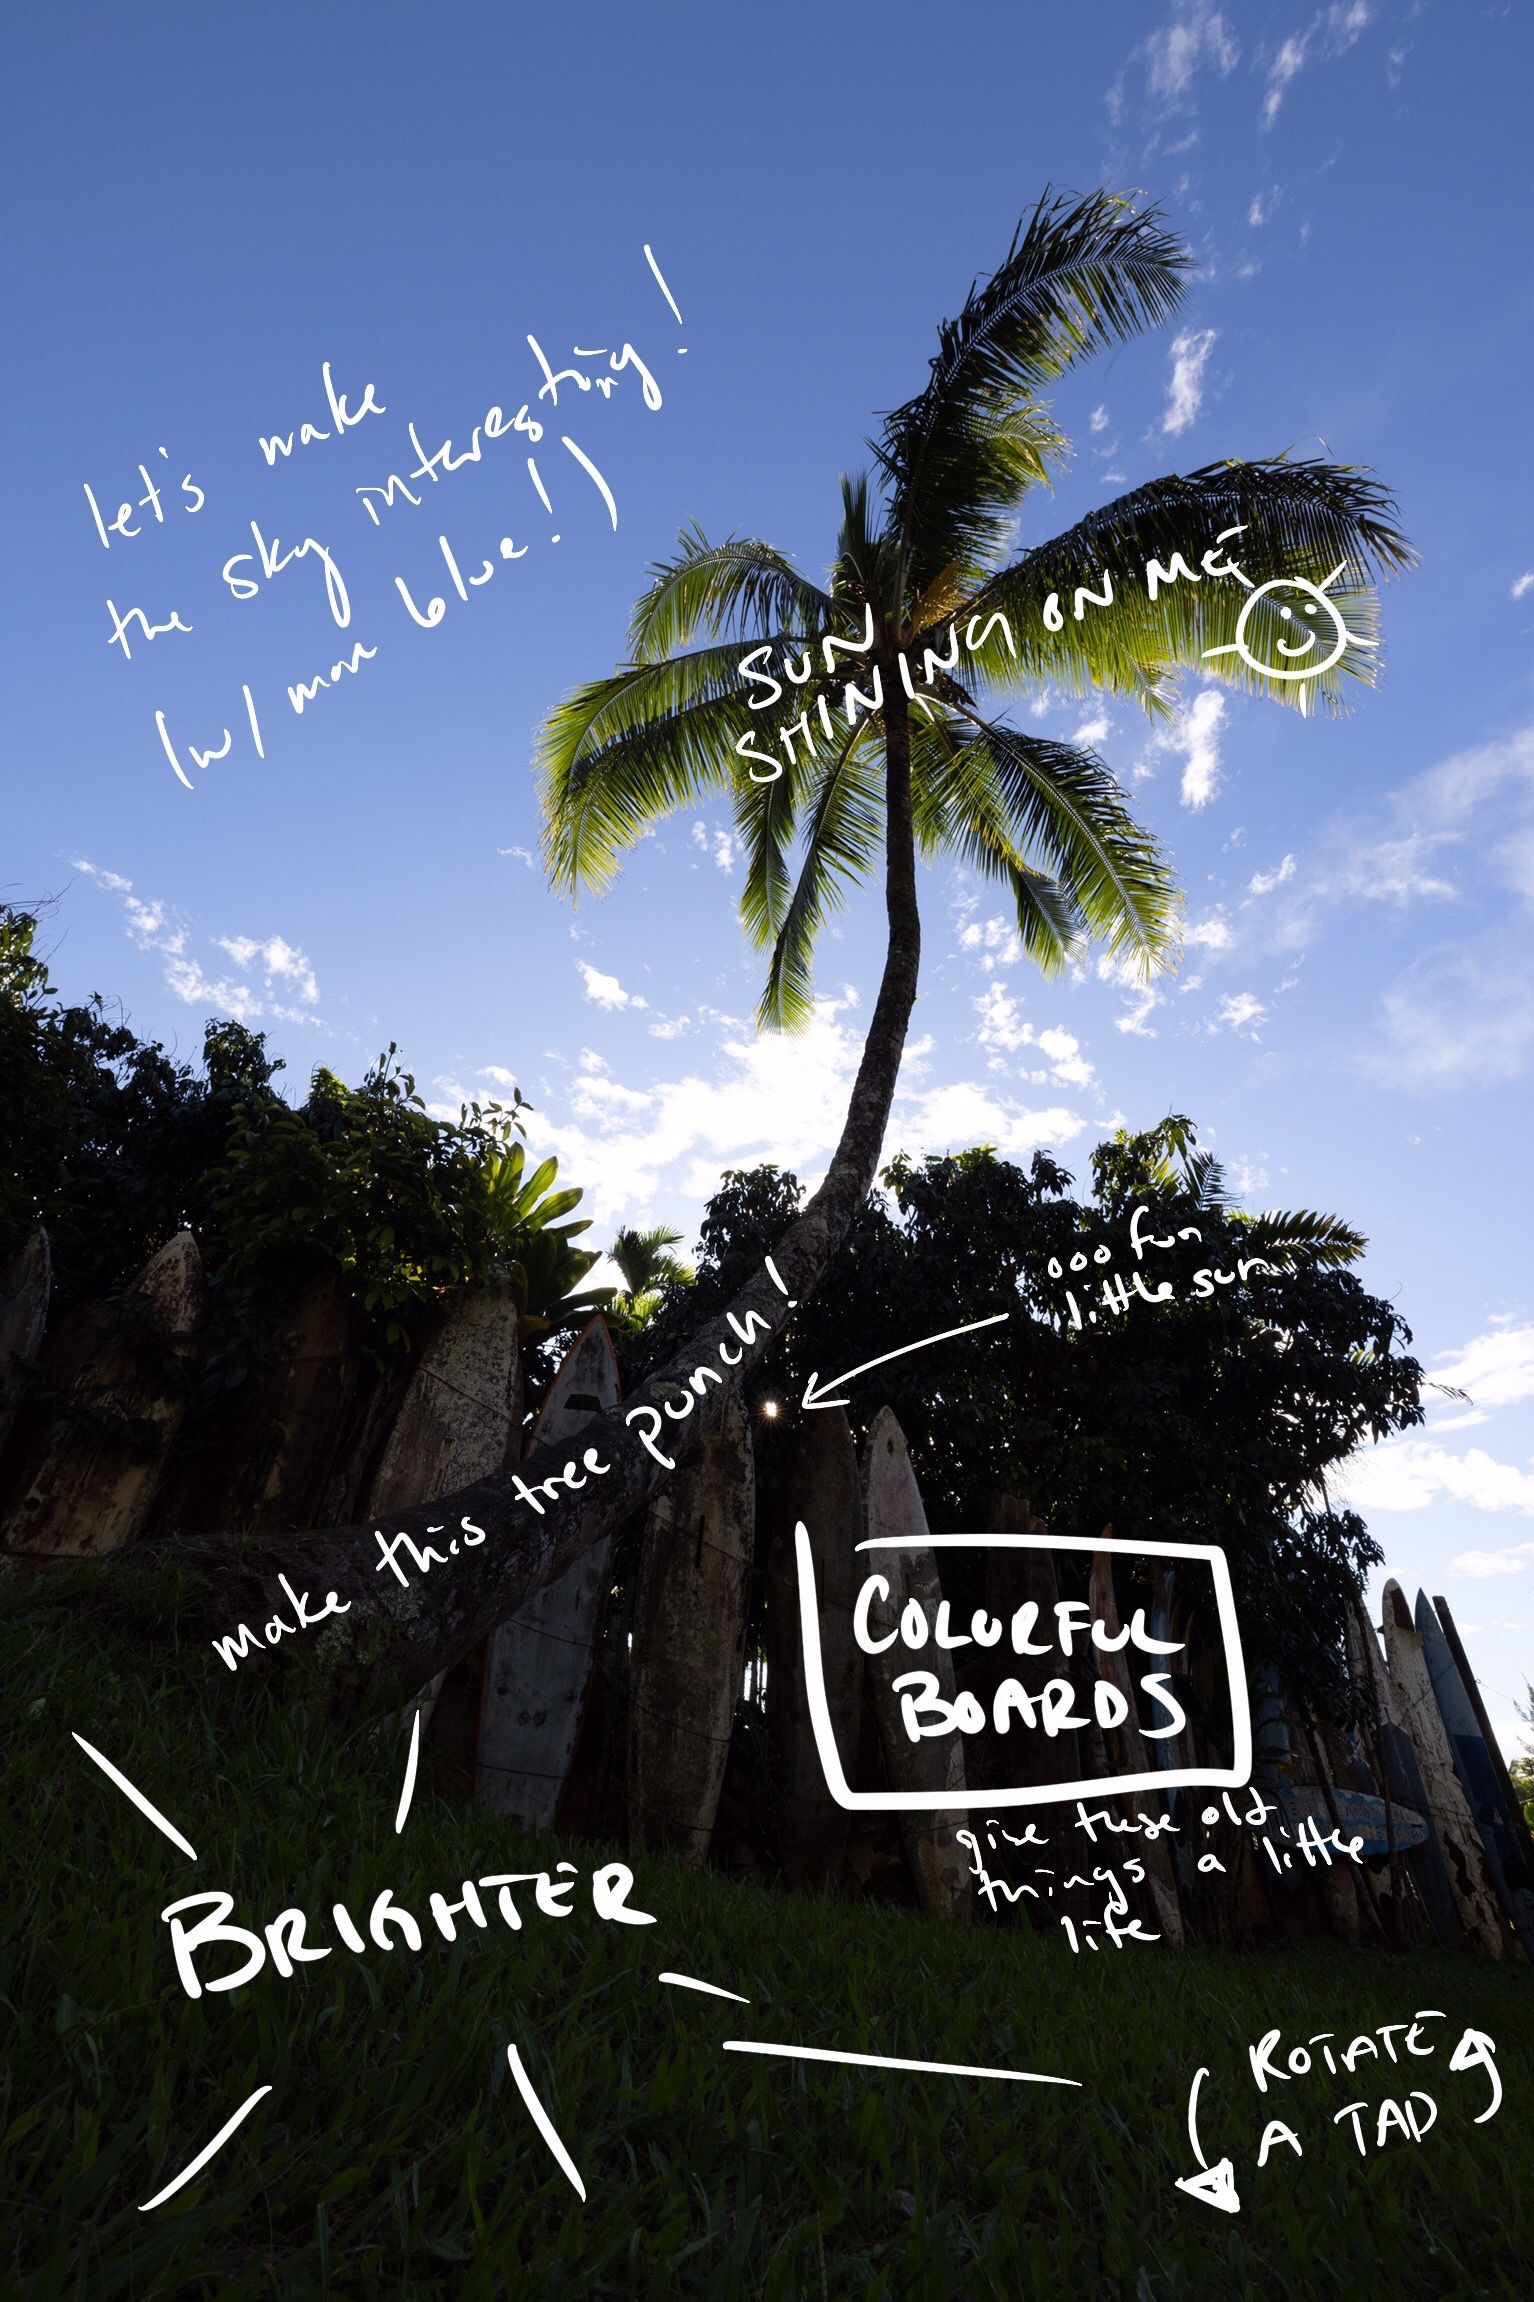 let's make
the sky interesting!
(w/ more blue!)
SUN
SHINING ON ME
ooo fun
little sun
make this tree punch!
COLORFUL
BOARDS
give these old
things a little
life
BRIGHTER
ROTATE
A TAD